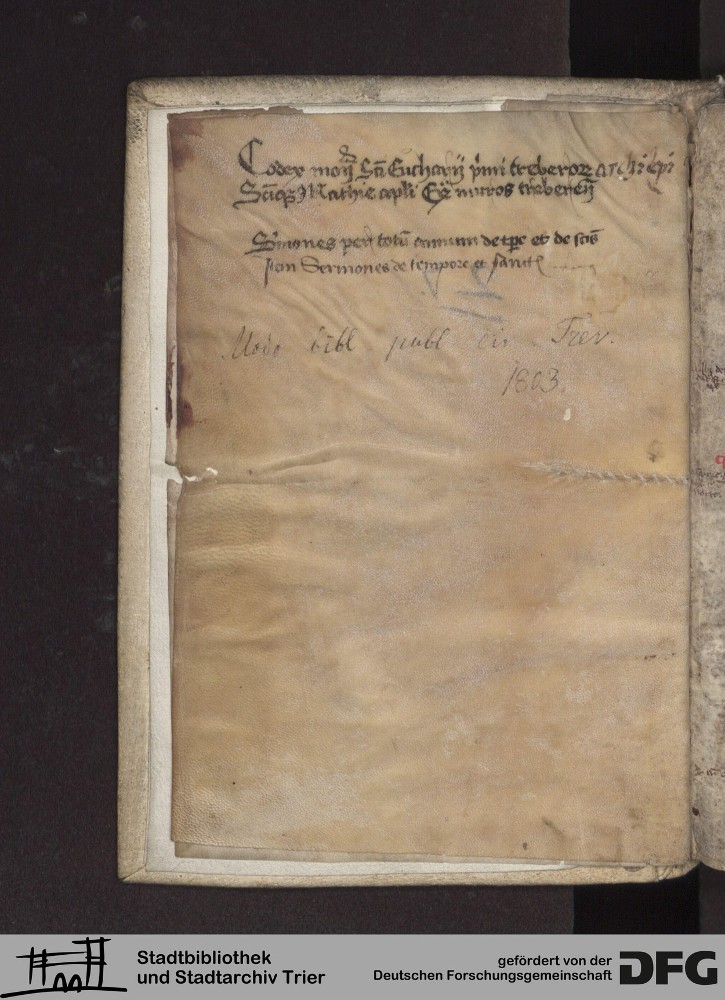 Codex moñ Sci Eucharij p'mi treveror archiepi
Scīq3 Mathie apli Ex' muros treveren̄
S'mones per totū annum de tp̄e et de scīs
Itm Sermones de tempore et sanct
Modo bibl publ civ Trev.
1803.
Stadtbibliothek
und Stadtarchiv Trier
gefördert von der
Deutschen Forschungsgemeinschaft
DFG